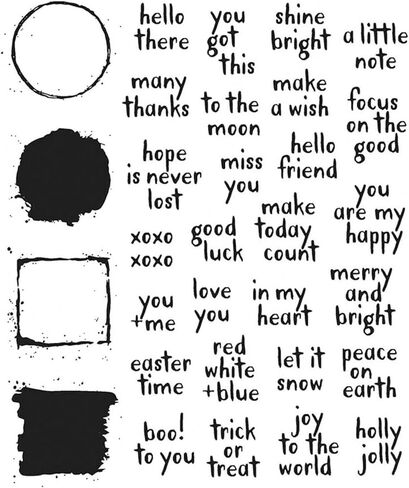 hello
there
you
got
this
shine
bright
a little
note
many
thanks
to the
moon
make
a wish
focus
on the
good
hope
is never
lost
miss
you
hello
friend
you
are my
happy
xoxo
xoxo
good
luck
make
today
count
merry
and
bright
you
+me
love
you
in my
heart
easter
time
red
white
+blue
let it
snow
peace
on
earth
boo!
to you
trick
or
treat
joy
to the
world
holly
jolly